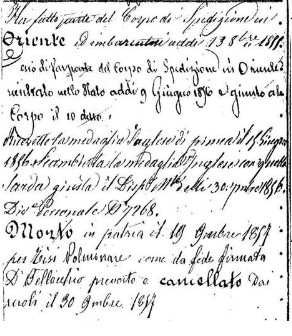 Ha fatto parte del Corpo di Spedizione in
Oriente ed imbarcatosi addi 13 8bre 1855.
Cessò di far parte del Corpo di Spedizione in Oriente e
rientrato nello Stato addi 9 Giugno 1856 e giunto al
Corpo il 10 detto.
Ricevette la medaglia Inglese di Crimea il 15 Giugno
1856.
Sarda giusta il 30 1856.
Div. Personale N. 7268.
Morto in patria il 19 9mbre 1857
per Tisi Polmonare come da fede firmata
D. Bellocchio prevosto e cancellato dai
ruoli il 30 9mbre 1857